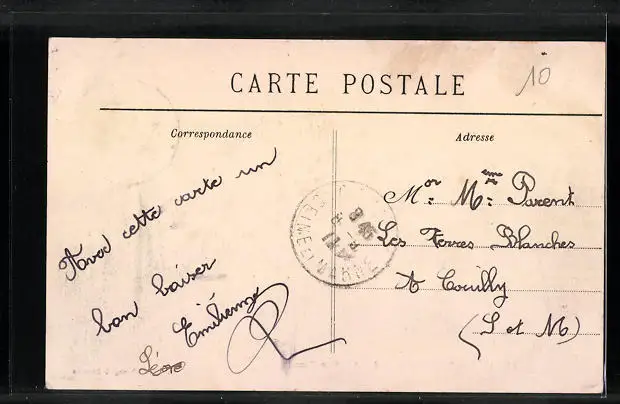 CARTE POSTALE
10
Correspondance
Adresse
Avec cette carte un
bon baiser
Emilienne
Mor Mme Parent
Les Terres Blanches
A Couilly
(S et M)
SEINE-ET-MARNE